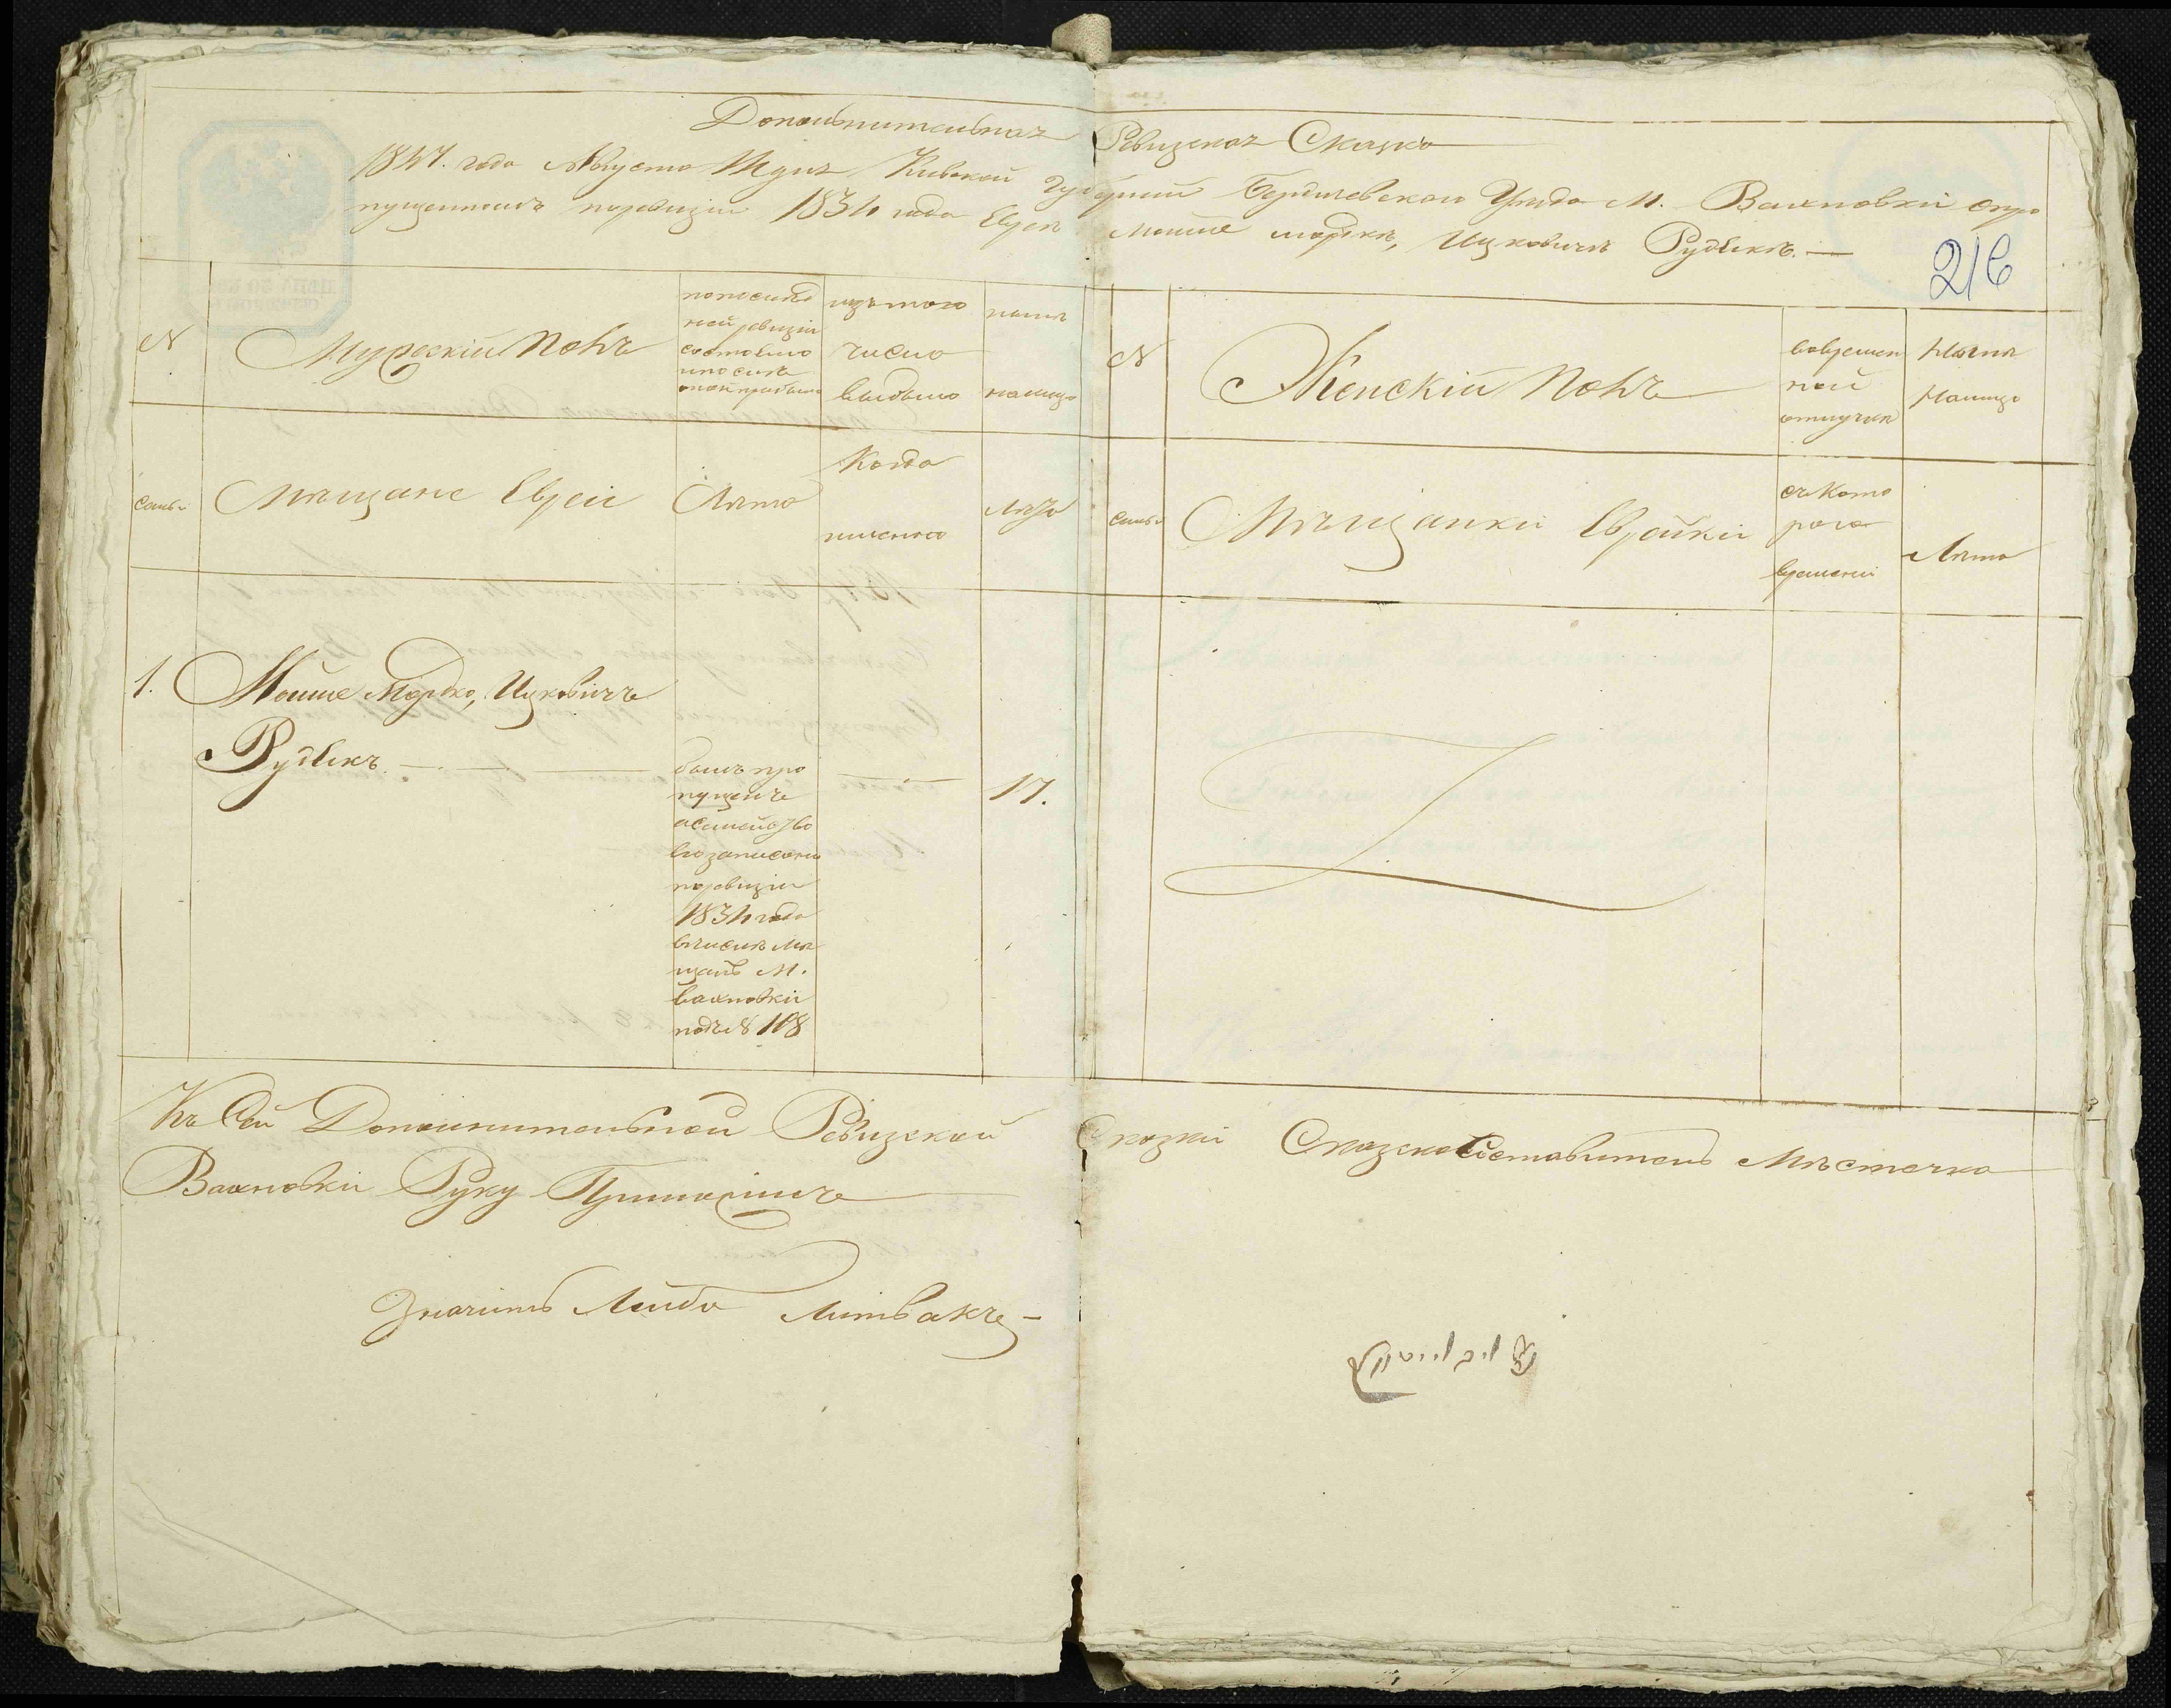 Дополнительная Ревизская Сказка
1847. года Августа дня Киевской губерний Бердичевскаго Уезда М. Вахновки опро
пущенномъ поревизіи 1834 года Евреѣ Мошке мордкѣ, Ицковичѣ Рудыкѣ. —
216
№
Мужескій Полъ
попослѣд
ней ревизіи
состояло
ипослѣ
оной прибыло
изътого
числа
выбыло
нынѣ
налицо
№
Женскій Полъ
вовремен
ной
отлучкѣ
Нынѣ
Налицо
семьи
Мѣщане Евреи
Лѣта
Когда
имянно
Лѣта
семьи
Мѣщанки Еврейки
съКото
раго
времени
Лѣта
1. Мошко Мордко, Ицковичъ
Рудыкъ.
былъ про
пущенъ
асемейство
его записано
поревизіи
1834 года
вчислѣ мѣ
щанъ М.
Вахновки
подъ № 108
17.
Къ Сей Дополнительной Ревизской Сказки Сказкосоставитель Мѣстечка
Вахновки Руку Приложилъ
Значитъ Лейба Литвакъ —